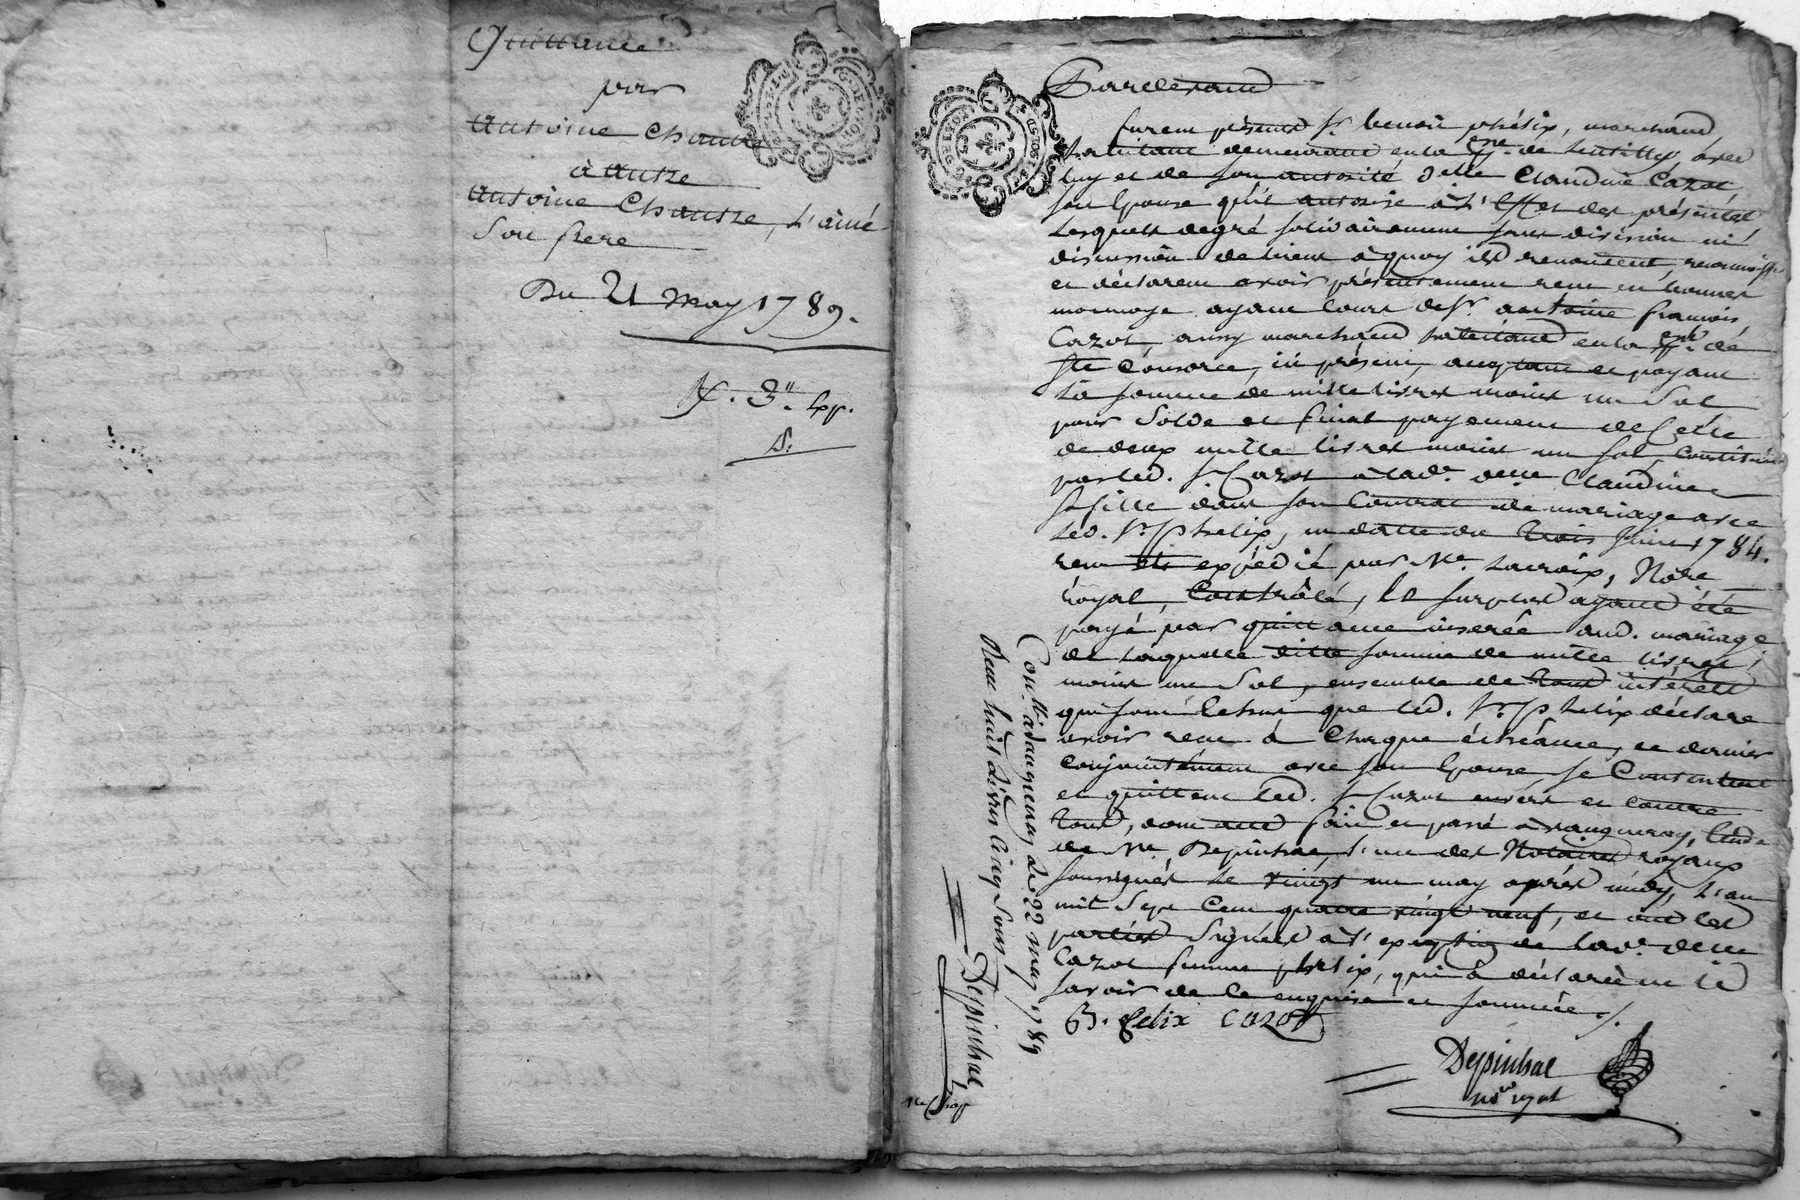 Quittance
par
Antoine Chautre
à autre
Antoine Chautre, L'ainé
Son frere
Du 21 May 1789.
3".
Pardevant
furent présents Sr. benoit phélix, marchand
habitant demeurant en la de Lentilly, avec
luy et de son autorité delle Claudine Cazot
son Epouse qu'il autorise à L'effet des présentes
Lesquels degré solidairement sans division ni
discussion de biens à quoy ils renoncent,
et déclarent avoir présentement reçu en bonnes
monnoye ayant Cours de Sr. antoine françois
Cazot, aussy marchand habitant en la de
Ste Consorce, ici présent, acceptant et payant
La somme de mille Livres moins un Sol
pour Solde et final payement de Celle
de deux mille livres moins un sol, constituée
par led. Sr. Cazot à lad. delle Claudine
sa fille dans son Contrat de mariage avec
led. Sr. phelix, en datte du trois Juin 1784.
reçu et expédié par Me. Lacroix, Nore
royal, Controlé, le surplus ayant été
payé par quittance inserée aud. mariage
de Laquelle ditte somme de mille livres,
moins un Sol, ensemble de tous intérêts
que led. Sr. phelix déclare
avoir reçu à Chaque échéance, ce dernier
Conjointement avec son Epouse se Contentent
et quittent led. Sr Cazot envers et contre
tous, dont acte fait et passé à vaugneray, Etude
de Me Depinhac, l'un des Notaires royaux
soussignés le vingt un may après midy, L'an
mil Sept Cent quatre vingt neuf, et ont les
parties Signées à l'exeption de lad. delle
Cazot femme phelix, qui a déclaré ne le
savoir de Ce enquise et sommée.
B. felix Cazot
Depinhac
nore royal
Conllé à vaugneray le 22 may 1789
Reçu huit livres Cinq Sous
Depinhac